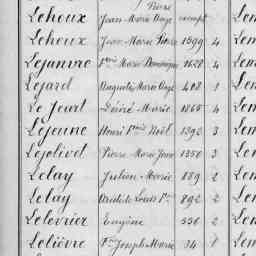 Pierre
Lehoux Jean Marie Ange exempt Lem
Lehoux Jean Marie Pierre 1599 4 Lem
Lejanvre Pre Marie Dominique 1628 4 Lem
Lejard Auguste Marie Ange 408 1 Lem
Le Jeart Désiré Marie 1865 4 Lem
Lejeune Henri Pre Noël 1392 3 Lem
Lejolivet Pierre Marie Jean 1350 3 Lem
Lelay Julien Marie 889 2 Lem
Lelay Louis 892 2 Lem
Lelevrier Eugène 556 2 Lem
Lelièvre Joseph Marie 34 1 Lem